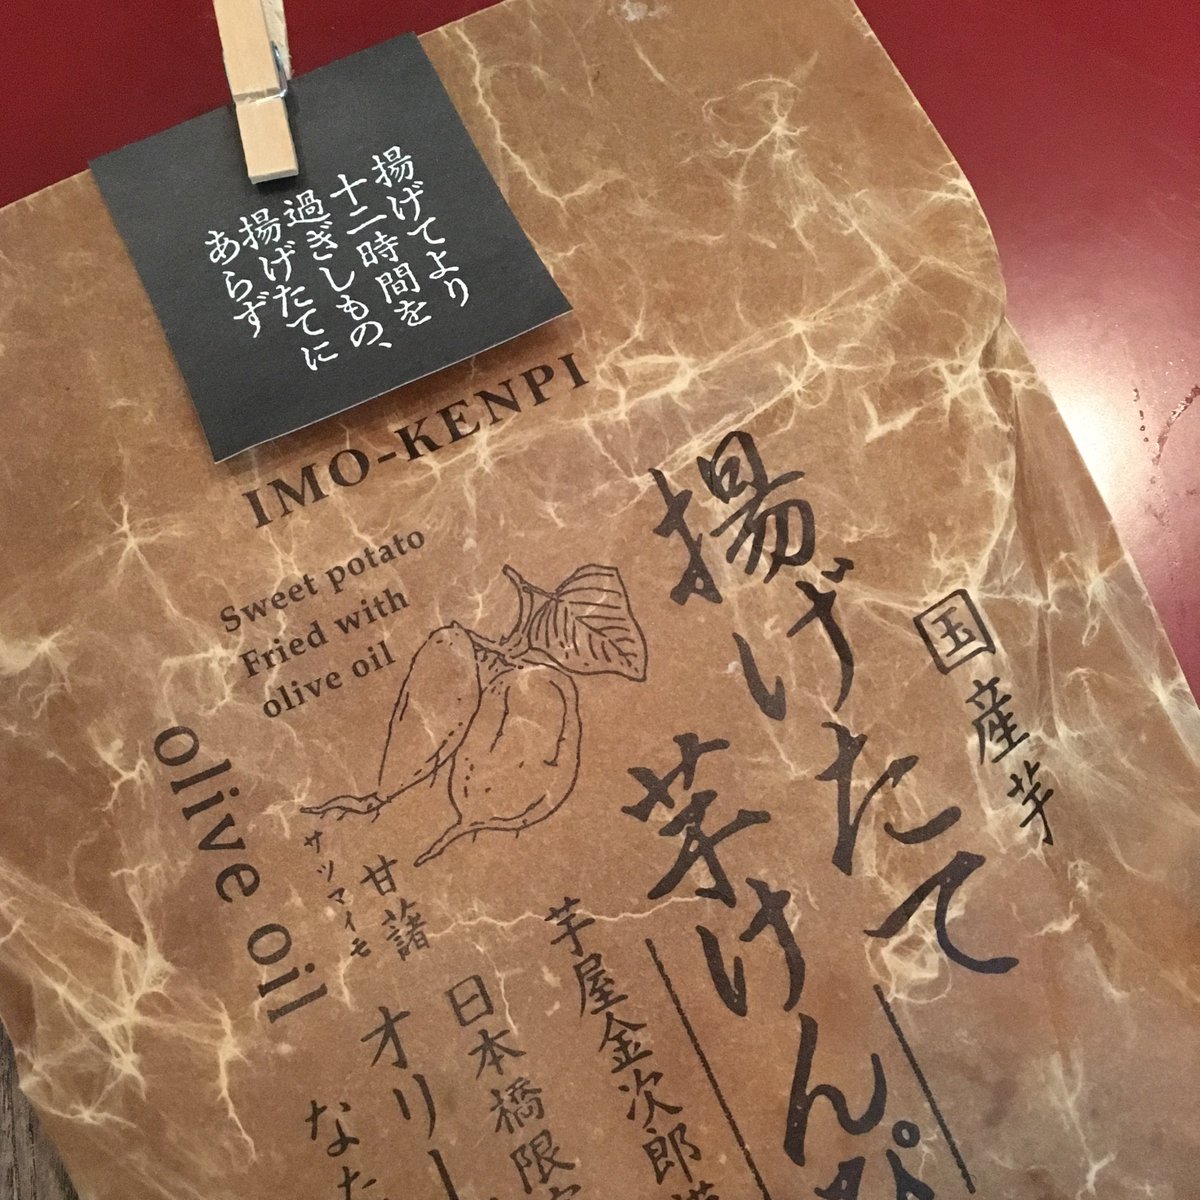 揚げてより
十二時間を
過ぎしもの、
揚げたてに
あらず
IMO-KENPI
Sweet potato
Fried with
olive oil
olive oil
国産芋
揚げたて
芋けんぴ
芋屋金次郎
日本橋限
甘藷
サツマイモ
オリー
なた